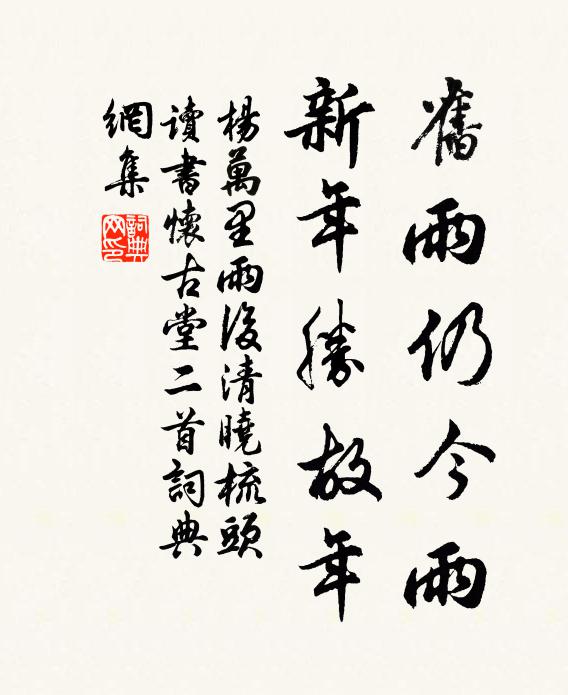 舊雨仍今雨
新年勝故年
楊萬里雨後清曉梳頭
讀書懷古堂二首詞典
網集
詞典
网印